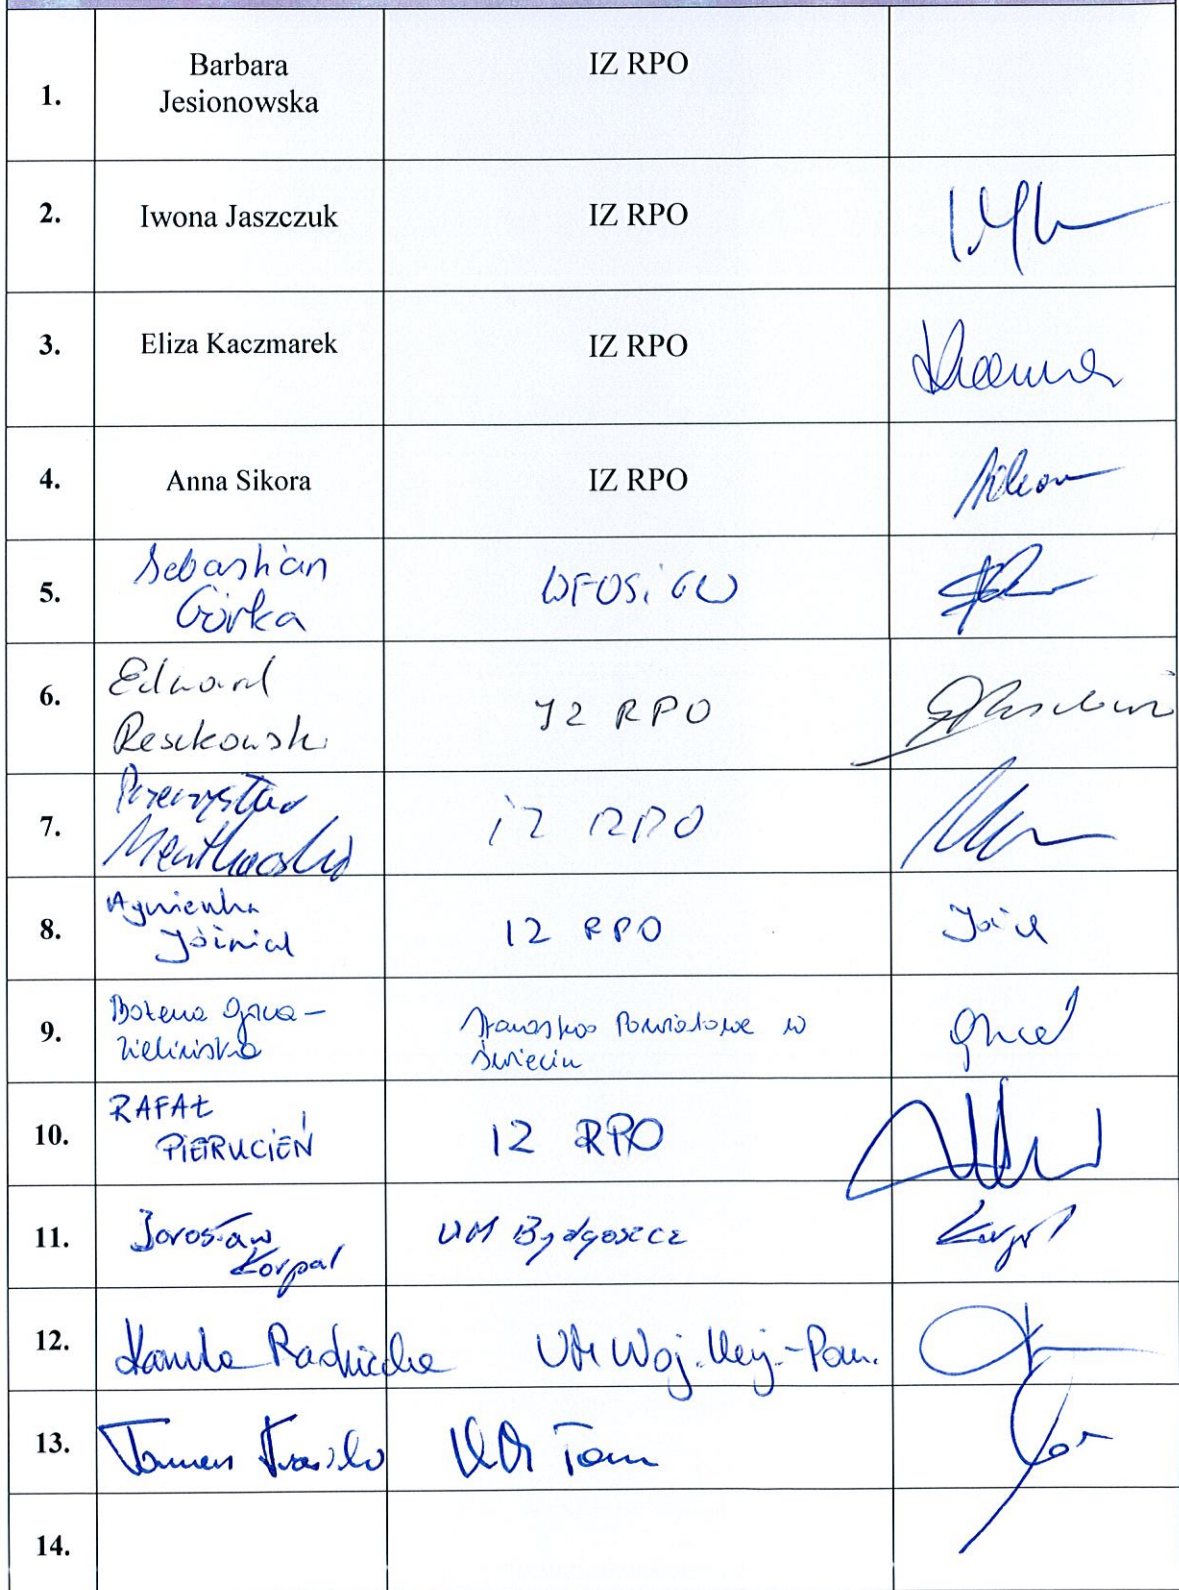 1.
Barbara
Jesionowska
IZ RPO
2.
Iwona Jaszczuk
IZ RPO
3.
Eliza Kaczmarek
IZ RPO
4.
Anna Sikora
IZ RPO
5.
Sebastian
Górka
WFOŚiGW
6.
Edward
Reszkowski
IZ RPO
7.
Przemysław
Mentkowski
IZ RPO
8.
Agnieszka
Jóźniak
IZ RPO
9.
Bożena
Zielińska
Starostwo Powiatowe w
Świeciu
10.
RAFAŁ
PIERUCIEŃ
IZ RPO
11.
Jarosław
Korpal
UM Bydgoszcz
12.
Kamila Radziecka
UM Woj. Kuj.-Pom.
13.
Tomasz
UM
14.